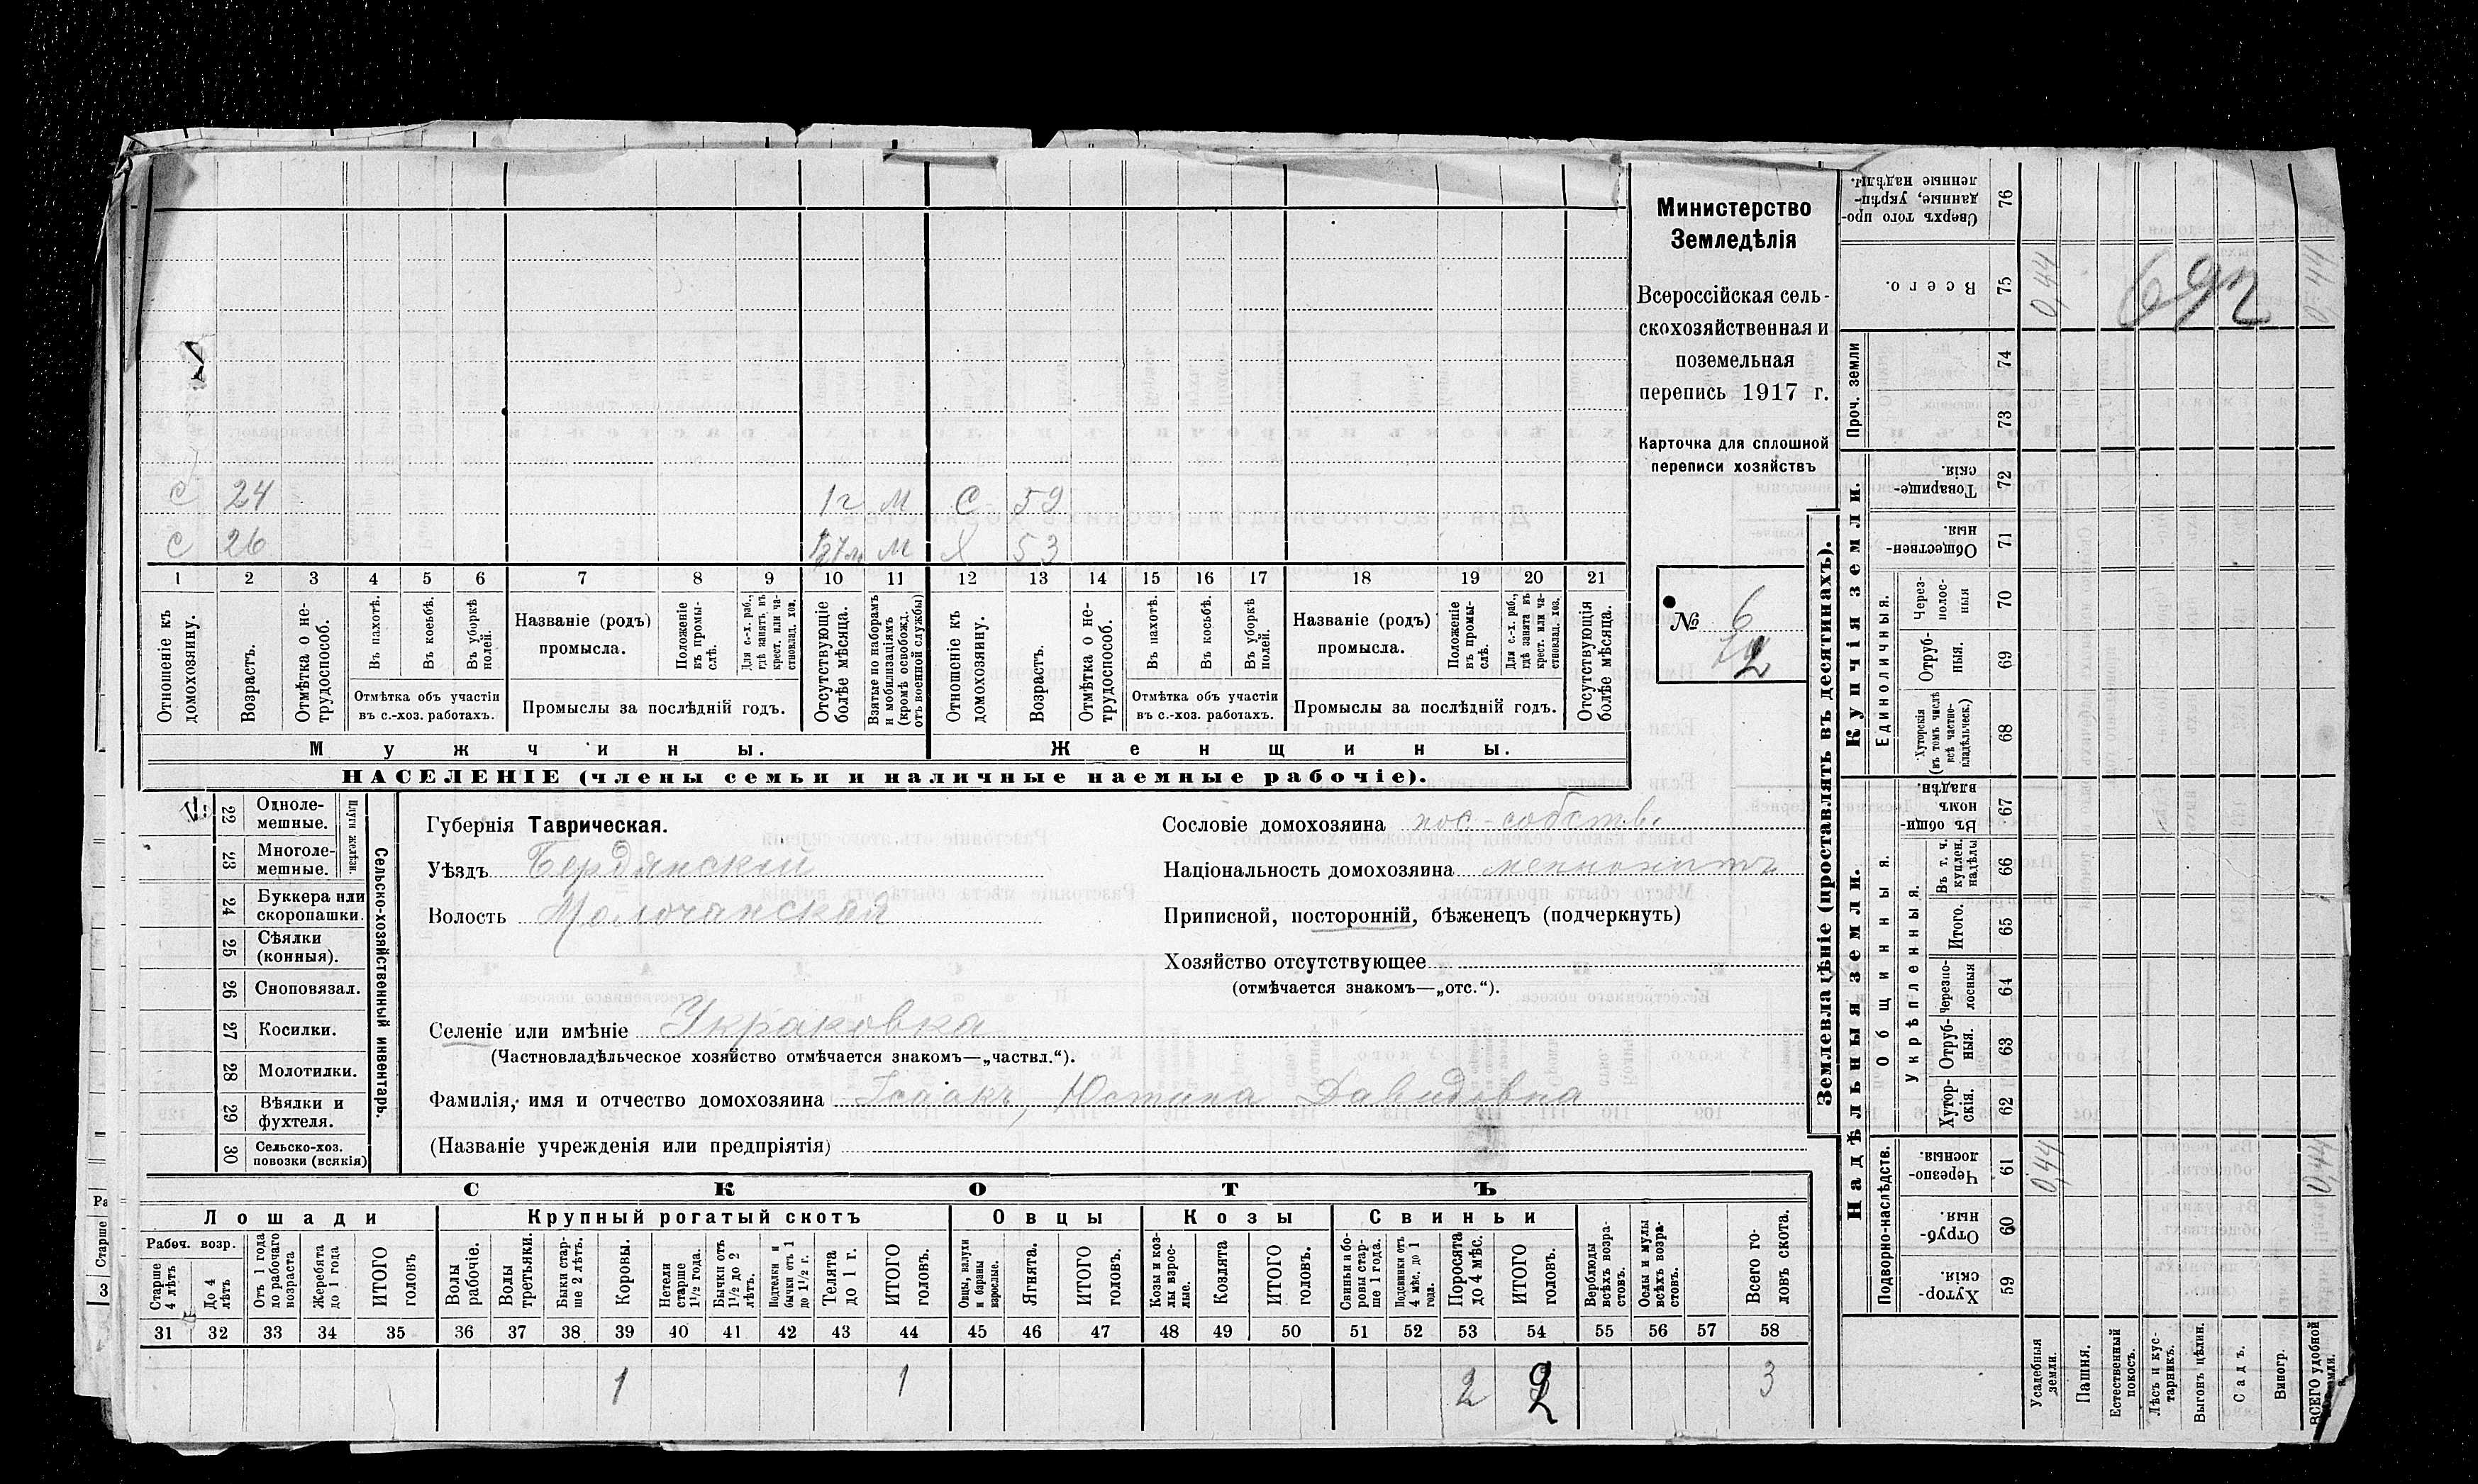 Министерство
Земледѣлія
Всероссійская сель-
скохозяйственная и
поземельная
перепись 1917 г.
Карточка для сплошной
переписи хозяйствъ
№ 6
с 24 1 г м с 59
с 26 м х 53
1 2 3 4 5 6 7 8 9 10 11 12 13 14 15 16 17 18 19 20 21
Отношеніе къ домохозяину.
Возрастъ.
Отмѣтка о не-трудоспособ.
Въ пахотѣ.
Въ косьбѣ.
Въ уборкѣ полей.
Отмѣтка объ участіи
въ с.-хоз. работахъ.
Названіе (родъ)
промысла.
Положеніе въ промы-слѣ.
Для с.-х. раб., гдѣ занятъ въ крест. или ча-стновлад. хоз.
Промыслы за послѣдній годъ.
Отсутствующіе болѣе мѣсяца.
Взятые по наборамъ и мобилизаціямъ (кромѣ освобожд. отъ военной службы)
Отношеніе къ домохозяину.
Возрастъ.
Отмѣтка о не-трудоспособ.
Въ пахотѣ.
Въ косьбѣ.
Въ уборкѣ полей.
Отмѣтка объ участіи
въ с.-хоз. работахъ.
Названіе (родъ)
промысла.
Положеніе въ промы-слѣ.
Для с.-х. раб., гдѣ занята въ крест. или ча-стновлад. хоз.
Промыслы за послѣдній годъ.
Отсутствующія болѣе мѣсяца.
Мужчины. Женщины.
НАСЕЛЕНІЕ (члены семьи и наличные наемные рабочіе).
Сельско-хозяйственный инвентарь.
Плуги желѣзн.
22 Одноле-
мешные.
23 Многоле-
мешные.
24 Буккера или
скоропашки.
25 Сѣялки
(конныя).
26 Сноповязал.
27 Косилки.
28 Молотилки.
29 Вѣялки и
фухтеля.
30 Сельско-хоз.
повозки (всякія)
Губернія Таврическая.
Уѣздъ Бердянскій
Волость Молочанская
Сословіе домохозяина пос-собств.
Національность домохозяина меннонитъ
Приписной, посторонній, бѣженецъ (подчеркнуть)
Хозяйство отсутствующее
(отмѣчается знакомъ—„отс.“).
Селеніе или имѣніе Украковка
(Частновладѣльческое хозяйство отмѣчается знакомъ—„частвл.“).
Фамилія, имя и отчество домохозяина Исаакъ, Юстина Давидовна
(Названіе учрежденія или предпріятія)
СКОТЪ
Лошади Крупный рогатый скотъ Овцы Козы Свиньи
Рабоч. возр.
Старше 4 лѣтъ
До 4 лѣтъ
Отъ 1 года до рабочаго возраста
Жеребята до 1 года
ИТОГО головъ
Волы рабочіе.
Волы третьяки.
Быки стар-ше 2 лѣтъ.
Коровы.
Нетели старше 1½ года.
Бычки отъ 1½ до 2 лѣтъ.
Подтелки и бычки отъ 1 до 1½ г.
Телята до 1 г.
ИТОГО головъ.
Овцы, валухи и бараны взрослые.
Ягнята.
ИТОГО головъ.
Козы и коз-лы взрос-лые.
Козлята
ИТОГО головъ.
Свиньи и бо-ровы стар-ше 1 года.
Подсвинки отъ 4 мѣс. до 1 года.
Поросята до 4 мѣс.
ИТОГО головъ.
Верблюды всѣхъ возра-стовъ.
Ослы и мулы всѣхъ возра-стовъ.
Всего го-ловъ скота.
31 32 33 34 35 36 37 38 39 40 41 42 43 44 45 46 47 48 49 50 51 52 53 54 55 56 57 58
1 1 2 2 3
Землевладѣніе (проставлять въ десятинахъ).
Надѣльныя земли. Купчія земли.
Подворно-наслѣдств.
Общинныя.
Укрѣпленныя.
Единоличныя.
Проч. земли
Сверхъ того про-данные, укрѣп-ленные надѣлы. 76
Всего. 75 0,44 692 0,44
74
73
Товарище-скія. 72
Обществен-ныя. 71
Через-полос-ныя 70
Отруб-ныя. 69
Хуторскія (въ томъ числѣ всѣ частно-владѣльческ.) 68
Въ общин-номъ владѣн. 67
Въ т. ч. куплен. надѣлы 66
Итого. 65
Черезпо-лосныя 64
Отруб-ныя. 63
Хутор-скія. 62
Черезпо-лосныя. 61 0,44 0,44
Отруб-ныя. 60
Хутор-скія. 59
Усадебныя земли.
Пашня.
Естественный покосъ.
Лѣсъ и кус-тарникъ.
Выгонъ цѣлин.
Садъ.
Виногр.
ВСЕГО удобной земли.